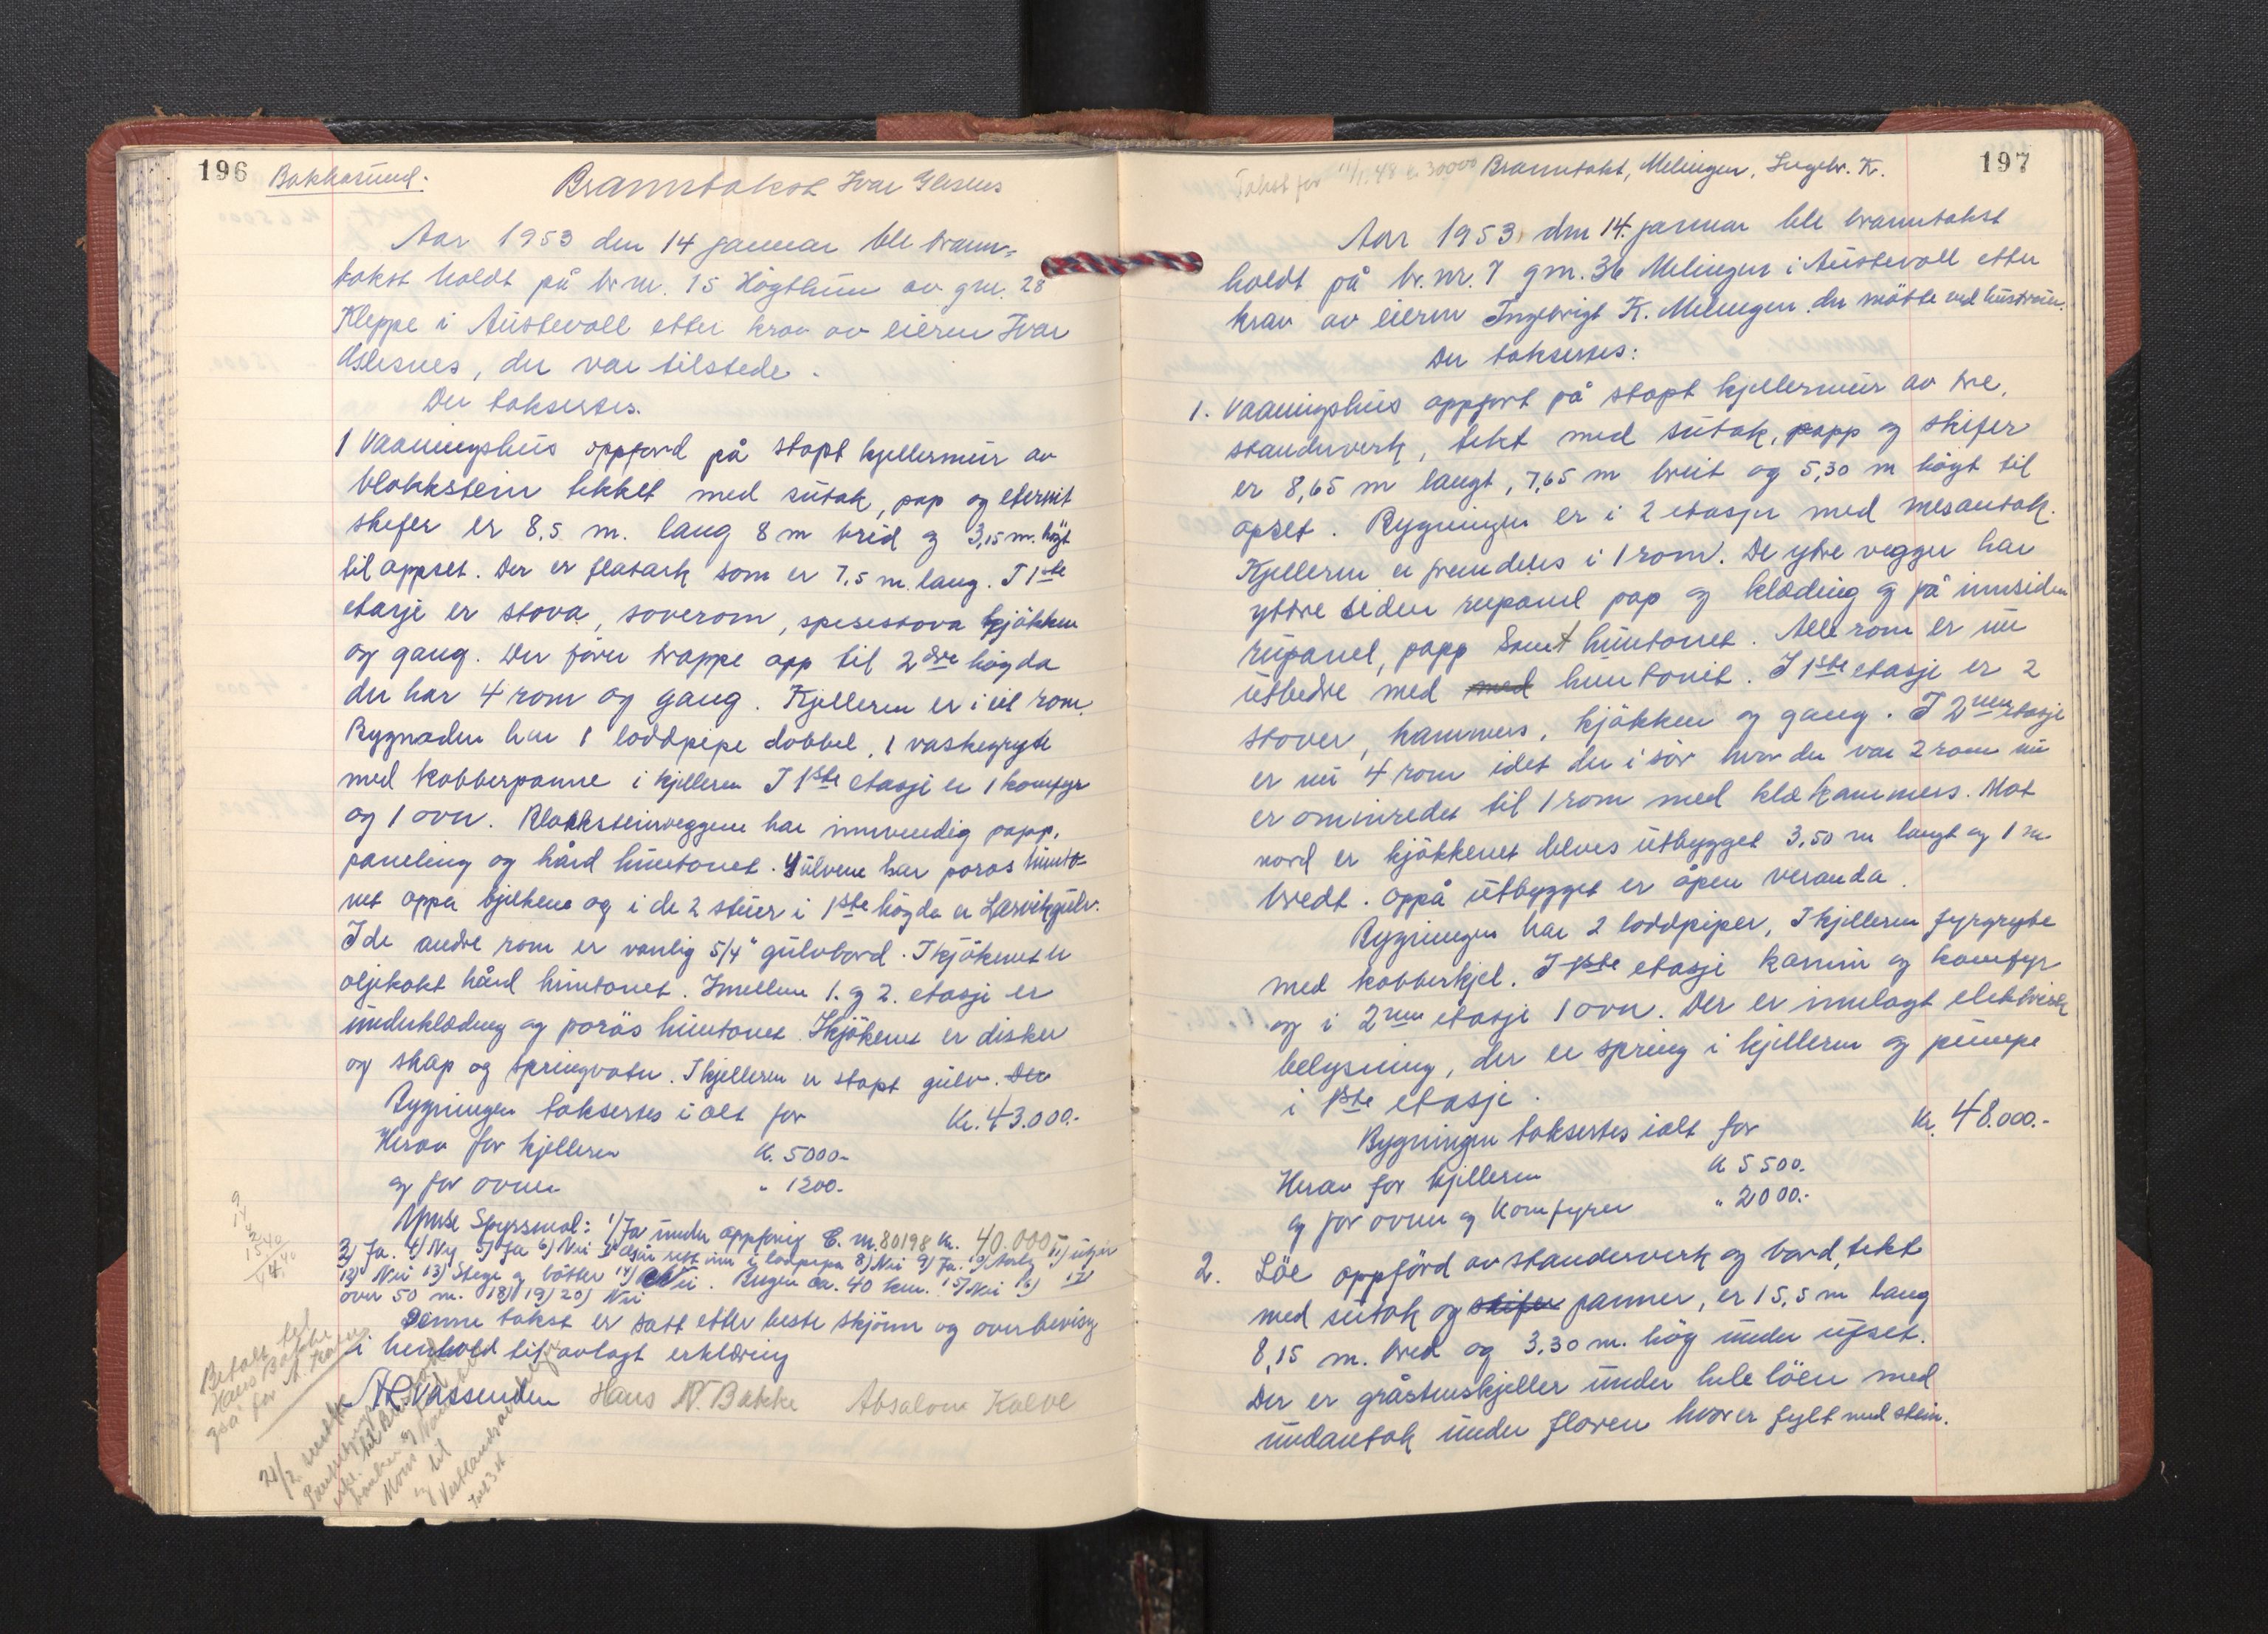 196 Bakkasund. Branntakst Ivar Glesnes
Aar 1953 den 14 januar ble brann-
takst holdt på br. nr. 15 Högthun av gnr. 28
Kleppe i Austevoll etter krav av eieren Ivar
Glesnes, der var tilstede.
Der takseres.
1 Vaaningshus oppførd på støpt kjellermur av
blokkstein tekket med sutak, pap og eternit
skifer er 8,5 m. lang 8 m breid og 3,15 m. høgt
til oppset. Der er flatark som er 7,5 m. lang. I 1ste
etasje er stova, soverom, spisestova kjökken
og gang. Der fører trappe opp til 2dre högda
der har 4 rom og gang. Kjelleren er i eit rom.
Bygnaden har 1 loddpipe dobbel, 1 vaskegryte
med kobberpanne i kjelleren I 1ste etasje er 1 komfyr
og 1 ovn. Blokksteinveggene har innvendig papp,
paneling og hård huntonet. Gulvene har porøs hunto-
net oppå bjelkene og i de 2 stuer i 1ste högda er Larvikgulv.
I de andre rom er vanlig 5/4" gulvbord. I kjökenet er
oljekokt hård huntonet. Imellem 1. og 2. etasje er
underklædning og porös huntonet. I kjökenet er disker
og skap og springvatn. I kjelleren er støpt gulv. Der
Bygningen takseres i alt for Kr. 43.000.-
Herav for kjelleren K. 5000-
og for ovner " 1200.-
Ymse Spyrsmål: 1) Ja under oppføring C. nr. 80198 Kr. 40.000
3) Ja. 4) Ny 5) Ja 6) Nei 7) Går rett inn i lodpipa 8) Nei 9) Ja. 10) 11) ingen
12) Nei 13) Stege og bötter 14) Nei. Bergen ca. 40 km. 15) Nei 16) 17)
over 50 m. 18) 19) 20) Nei
Denne takst er satt etter beste skjönn og overbevisning
i henhold til avlagt erklæring
Vassenden Hans N. Bakke Absalon Kalve
9
14
2
15.40
14.40
Betalt til
Hans Bakke
også for A. Kalve
21/2 sendt
og til
197
Takst for 11/1. 48 kr. 30000 Branntakst, Melingen, Ingebr. K.
Aar 1953 den 14. januar ble branntakst
holdt på br. nr. 7 gnr. 36 Melingen i Austevoll etter
krav av eieren Ingebrigt K. Melingen. der mötte ved hustruen.
Der takseres:
1. Vaaningshus oppført på støpt kjellermur av tre,
standerverk, tekt med sutak, papp og skifer
er 8,65 m langt, 7,65 m breit og 5,30 m högt til
opset. Bygningen er i 2 etasjer med mesantak.
Kjelleren er fremdeles i 1 rom. De ytre vegger har
yttre siden rupanel pap og klædning og på innsiden
rupanel, papp samt huntonet. Alle rom er nu
utbedre med med huntonit. I 1ste etasje er 2
stover, kammers, kjökken og gang. I 2nen etasje
er nu 4 rom idet der i sör hvor der var 2 rom nu
er ominredet til 1 rom med klekammers. Mot
nord er kjökkenet delves utbygget 3,50 m langt og 1 m
bredt. Oppå utbygget er åpen veranda.
Bygningen har 2 loddpiper, I kjelleren fyrgryte
med kobberkjel. I 1ste etasje kamin og komfyr
og i 2nen etasje 1 ovn. Der er innlagt elektrisk
belysning, der er spring i kjelleren og pumpe
i 1ste etasje.
Bygningen takseres ialt for Kr. 48.000.-
Herav for kjelleren K 5500.-
og for ovner og komfyrer " 2000.-
2. Löe oppförd av standerverk og bord, tekt
med sutak og skifer panner, er 15,5 m lang
8,15 m. bred og 3,30 m. hög under ufset.
Der er gråstenskjeller under hele löen med
undantak under floren hvor er fylt med stein.